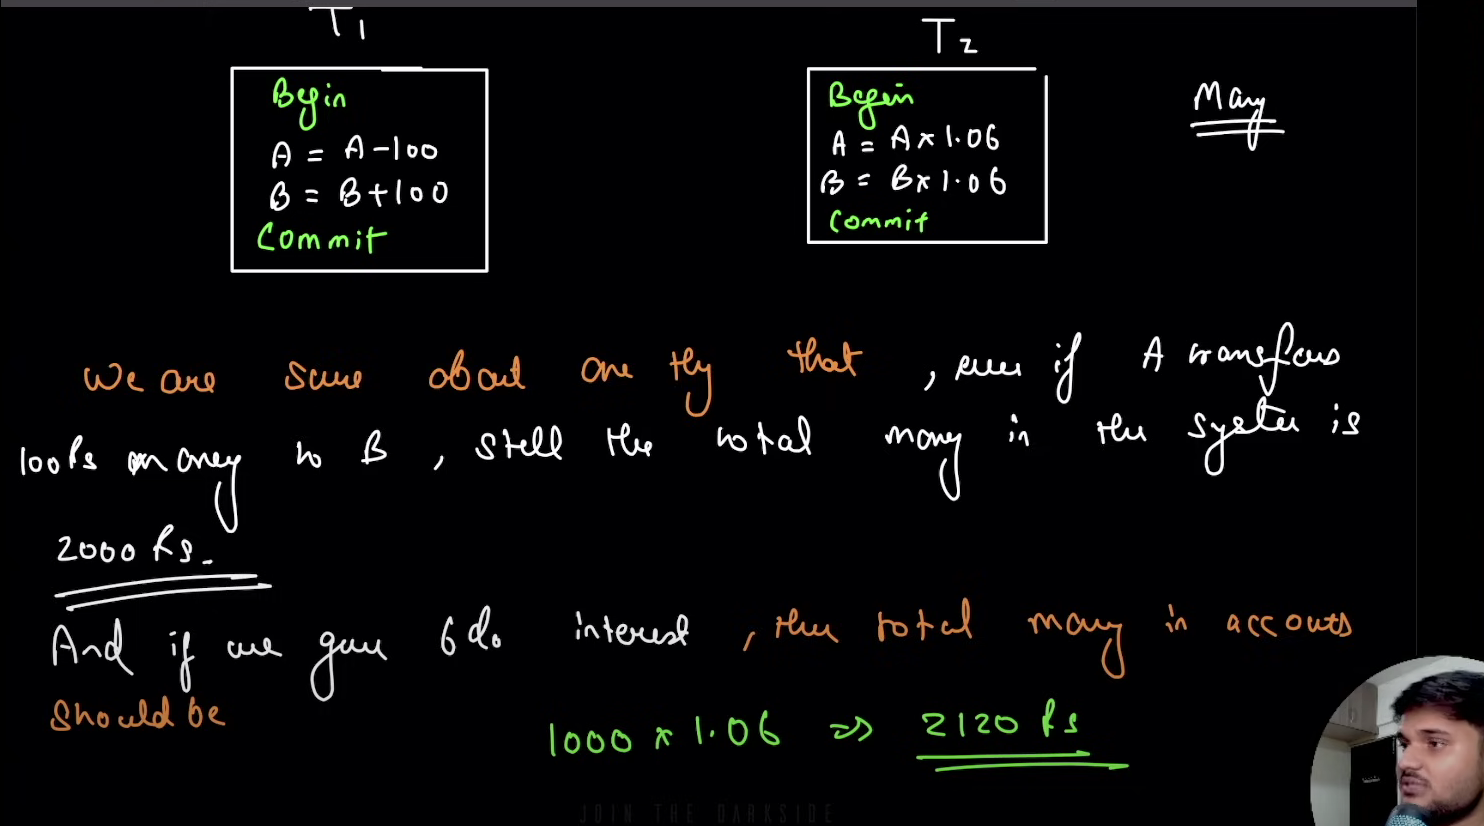 T1
T2
Begin
A = A-100
B = B+100
Commit
Begin
A = A×1.06
B = B×1.06
Commit
Many
We are sure about one thg that, even if A transfers
100Rs money to B, still the total mony in the system is
2000 Rs.
And if we gave 6% interest, the total mony in accouts
should be
1000 × 1.06 => 2120 Rs
JOIN THE DARKSIDE